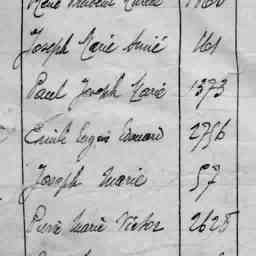 Joseph Marie 161
Paul Joseph Marie 1373
Emile Eugène Edouard 2756
Joseph Marie 57
Pierre Marie Victor 2628